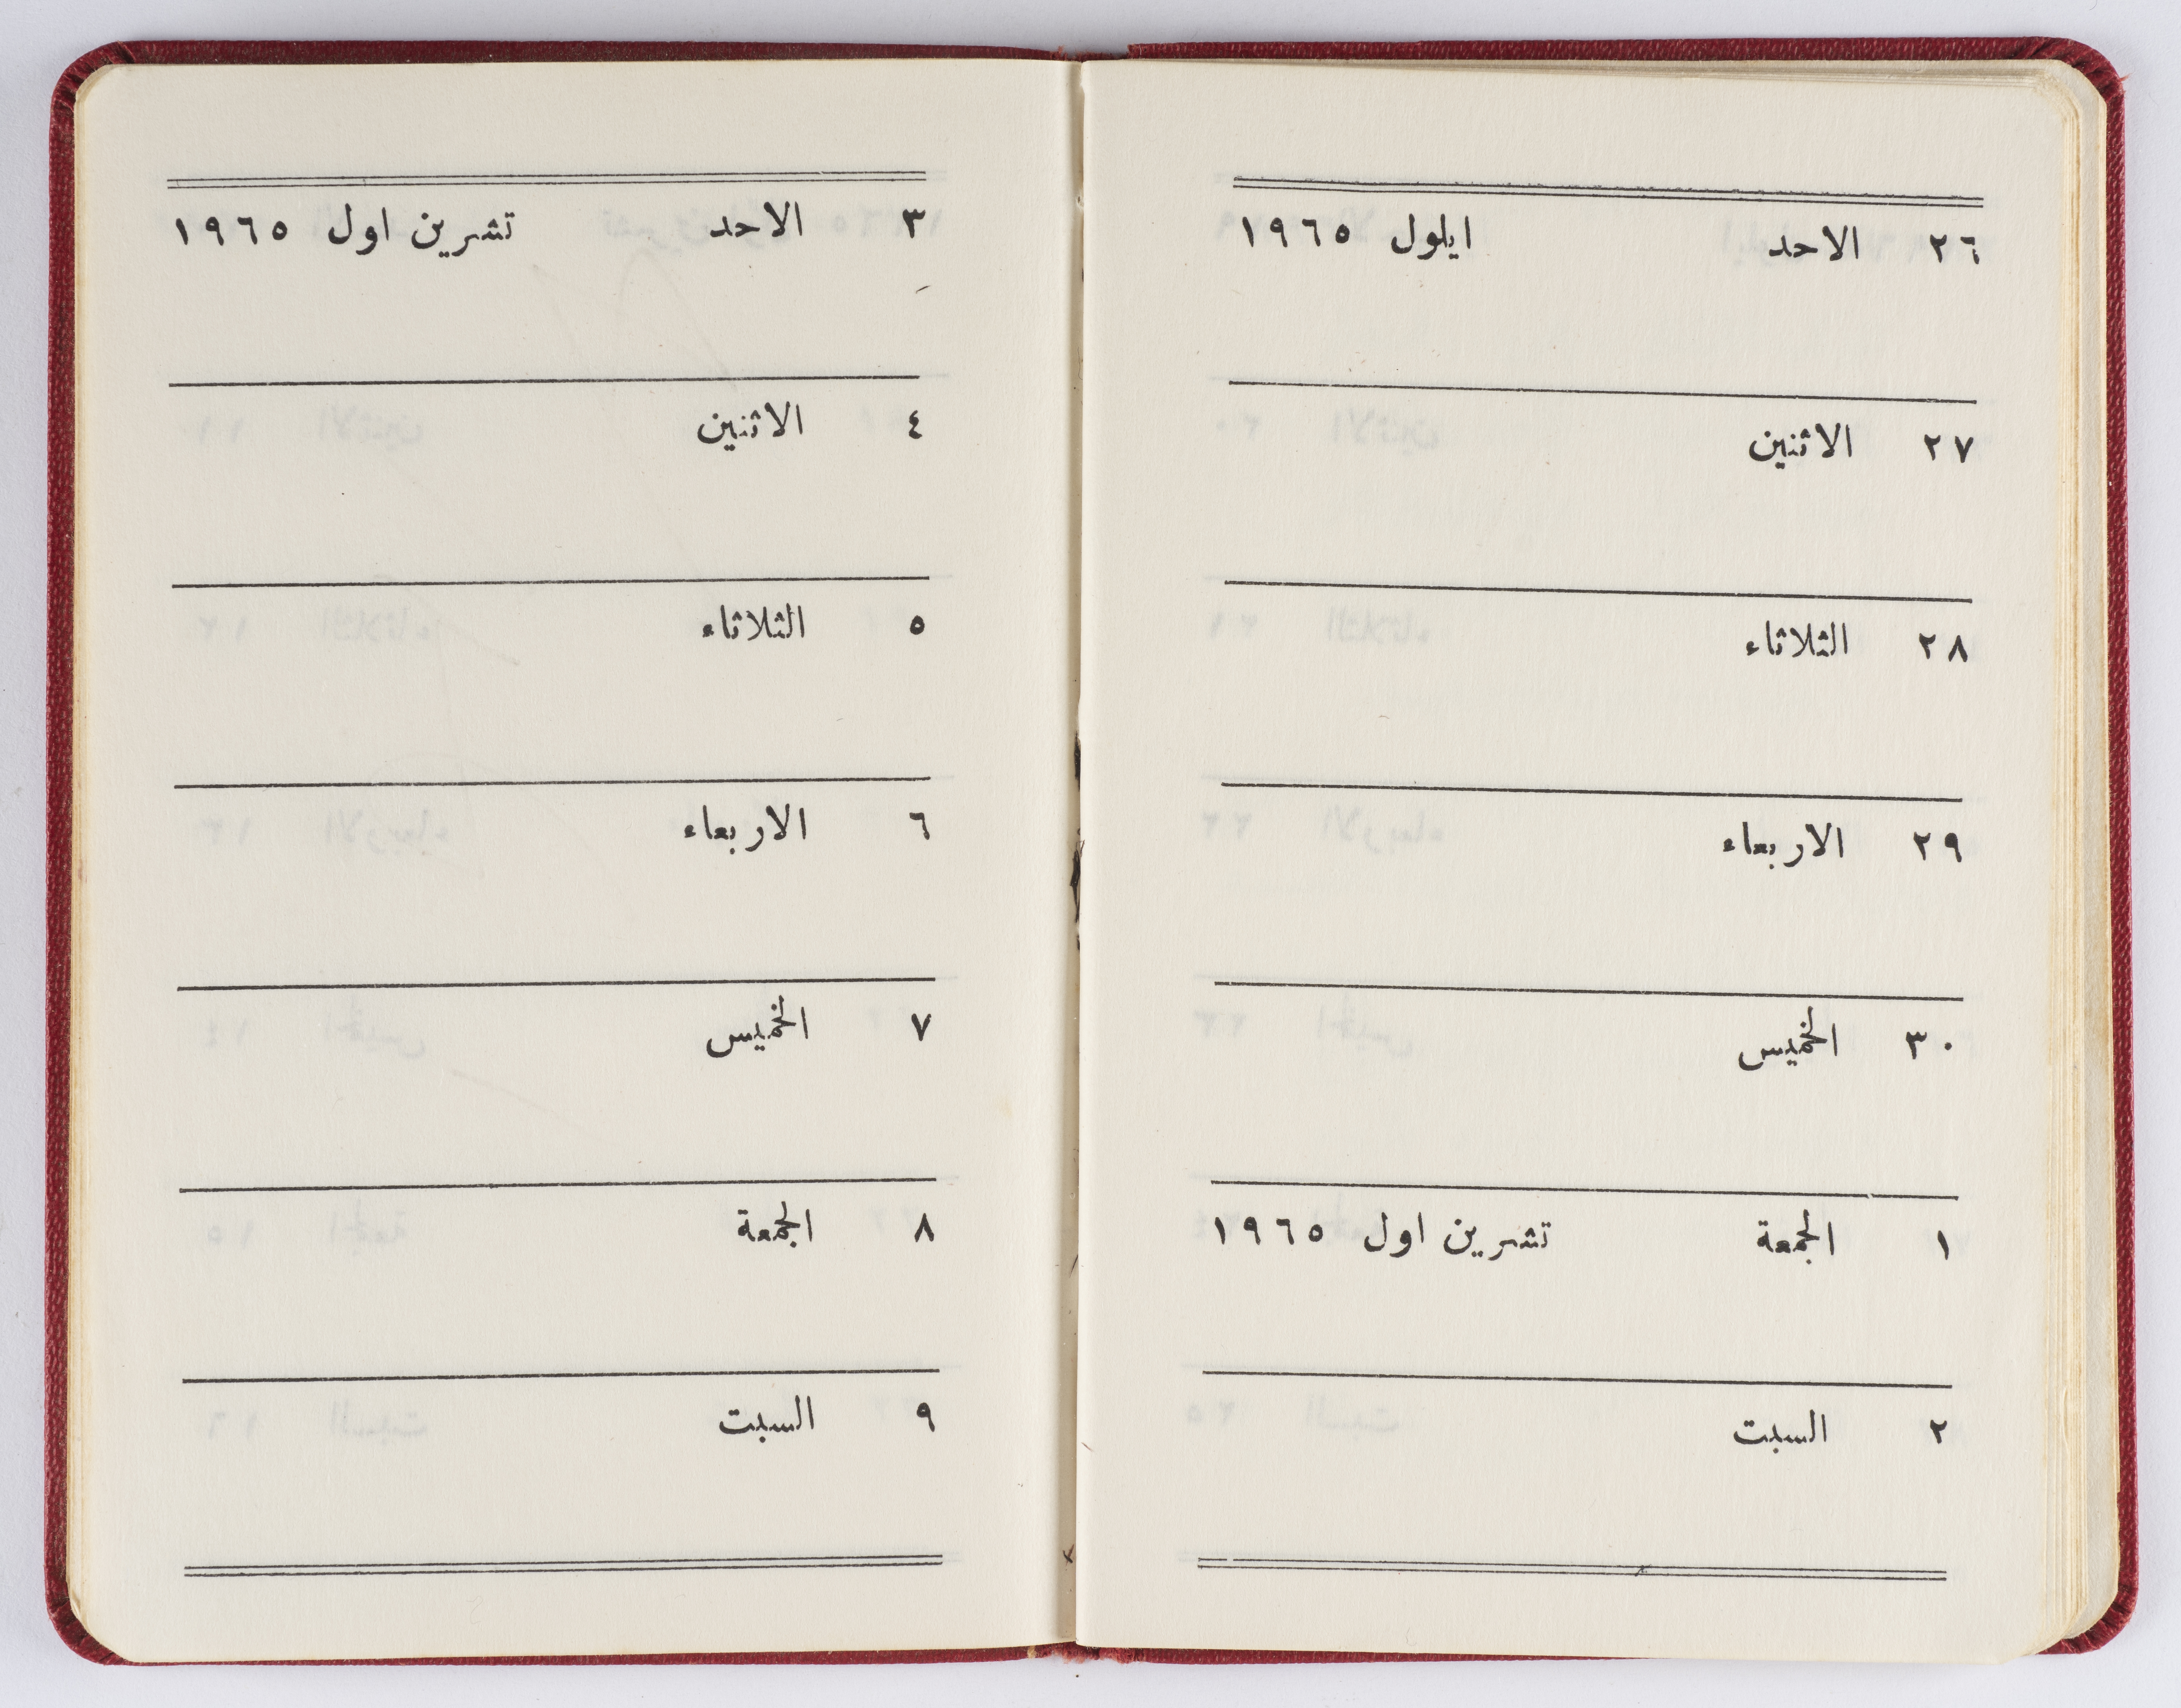 ٢٦ الاحد ايلول ١٩٦٥
٢٧ الاثنين
٢٨ الثلاثاء
٢٩ الاربعاء
٣٠ الخميس
١ الجمعة تشرين اول ١٩٦٥
٢ السبت
٣ الاحد تشرين اول ١٩٦٥
٤ الاثنين
٥ الثلاثاء
٦ الاربعاء
٧ الخميس
٨ الجمعة
٩ السبت